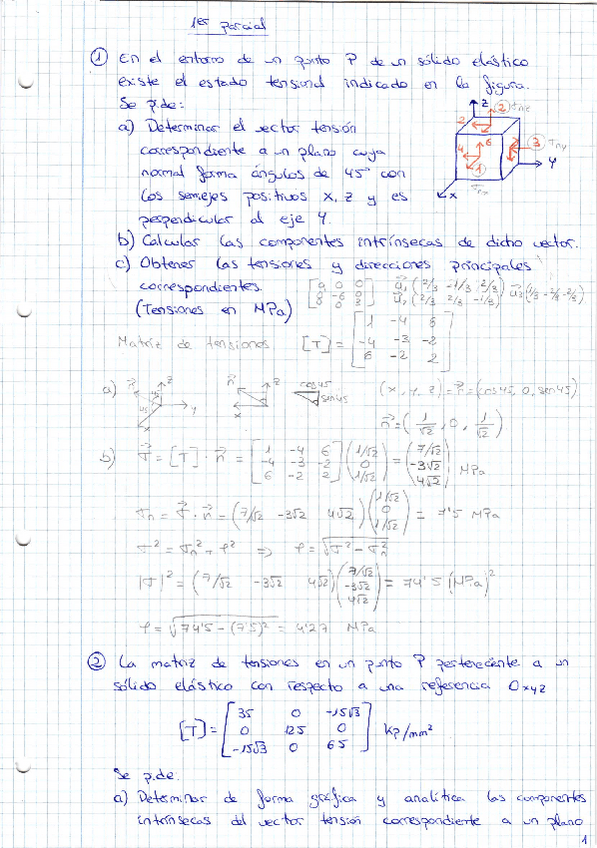 1er parcial
① En el entorno de un punto P de un sólido elástico
existe el estado tensional indicado en la figura.
Se pide:
a) Determinar el vector tensión
correspondiente a un plano cuya
normal forma ángulos de 45° con
los semejes positivos X, Z y es
perpendicular al eje Y.
b) Calcular las componentes intrínsecas de dicho vector.
c) Obtener las tensiones y direcciones principales
correspondientes.
(Tensiones en MPa)
Z
2
2
4
6
1
3
Y
X
[9 0 0; 0 -6 0; 0 0 3] u₁(2/3 -1/3 2/3) u₂(2/3 2/3 -1/3) u₃(1/3 -2/3 -2/3)
Matriz de tensiones [T] = [1 -4 6; -4 -3 -2; 6 -2 2]
a) n 45 45 z y x n z cos45 sen45 (x, y, z) = n = (cos45, 0, sen45)
n = (1/√2, 0, 1/√2)
b) σ = [T] · n = [1 -4 6; -4 -3 -2; 6 -2 2] (1/√2; 0; 1/√2) = (7/√2; -3√2; 4√2) MPa
σn = σ · n = (7/√2 -3√2 4√2) (1/√2; 0; 1/√2) = 7'5 MPa
σ² = σn² + τ² ⇒ τ = √σ² - σn²
|σ|² = (7/√2 -3√2 4√2) (7/√2; -3√2; 4√2) = 74'5 (MPa)²
τ = √74'5 - (7'5)² = 4'27 MPa
② La matriz de tensiones en un punto P perteneciente a un
sólido elástico con respecto a una referencia Oxyz
[T] = [35 0 -15√3; 0 125 0; -15√3 0 65] kp/mm²
Se pide:
a) Determinar de forma gráfica y analítica las componentes
intrínsecas del vector tensión correspondiente a un plano
1